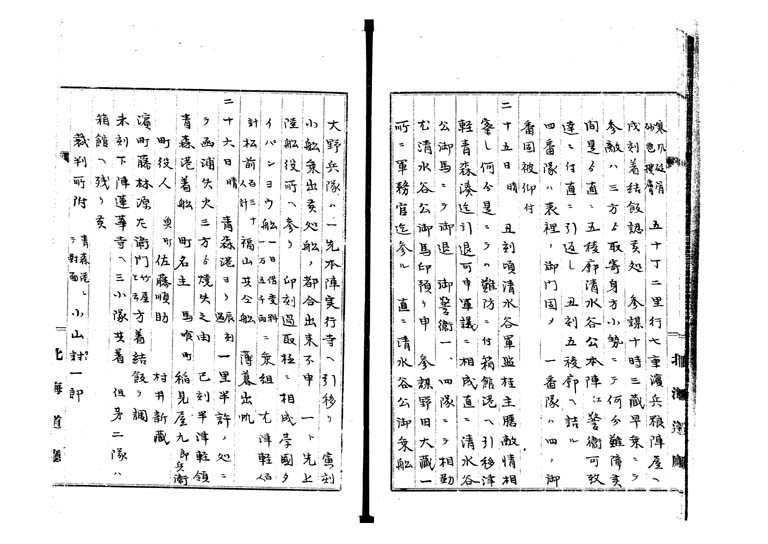 五十丁二里行七重濱兵粮陣屋ヘ
戌刻着結飯認亥処 参謀十時三蔵早乗ニテ
参敵ハ三方ゟ取寄身方小勢ニテ何分難障亥
間是ゟ直ニ五稜廓清水谷公本陣江警衛可致
達ニ付直ニ引返し 丑刻五稜廓ヘ詰ル
四番隊ハ表裡ノ御門固メ 一番隊ハ四ノ御
番固被仰付
二十五日 晴 丑刻頃清水谷軍監桂主膳敵情相
察し何分是ニテハ難防ニ付箱館港ヘ引移津
軽青森湊迄引退可申軍議ニ相成直ニ清水谷
公御馬ニテ御退 御警衛一、四隊ニテ相勤
尤清水谷公御馬印預リ申 参謀野田大蔵一
所ニ軍務官迄参ル 直ニ清水谷公御乗船
大野兵隊ハ一先本陣実行寺ヘ引移リ 寅刻
小船乗出亥処船ノ都合出来不申 一ト先上
陸船役所ヘ参リ 卯刻過取極ニ相成孛國タ
イパンヨウ船 一日借受料一万五千両 ニ乗組 尤津軽
計松前 福山共全船 薄暮出帆
二十六日晴 青森港ヨリ 一里半許ノ処ニ
テ西浦失火三方ゟ焼失之由 巳刻半津軽領
青森港着船 町名主 馬喰町 稲見屋九郎兵衛
町役人 奥町佐藤順助 村井新蔵
濱町藤林源左衛門 方着結飯ヲ調
未刻下陣蓮華寺ヘ三小隊共着 但另二隊ハ
箱館ヘ残リ亥
裁判所附 青森港ニテ対面 小山 一郎
北海道廳
北海道廳